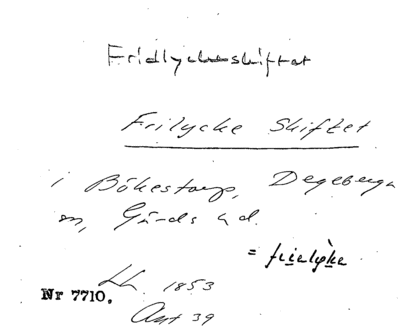 Fridlyckeskiftet
Frilycke Skiftet
i Bökestorp, Degeberga
sn, Gärds hd.
= frielyke
Lh. 1853
Nr 7710.
Akt 39